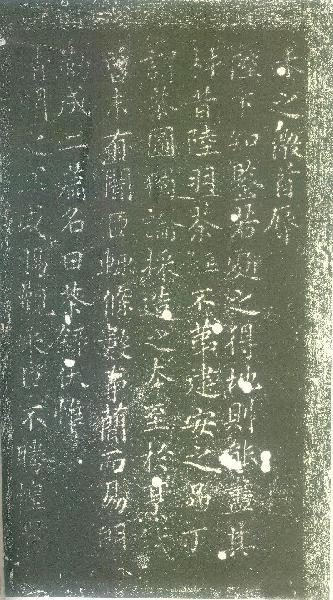 末之微首辱
陛下知鑒若處之得地則能盡其
材昔陸羽茶經不第建安之品丁
謂茶圖獨論採造之本至於烹試
曾未有聞臣輒條數事簡而易明
勒成二篇名曰茶錄伏惟
清閒之宴或賜觀采臣不勝惶